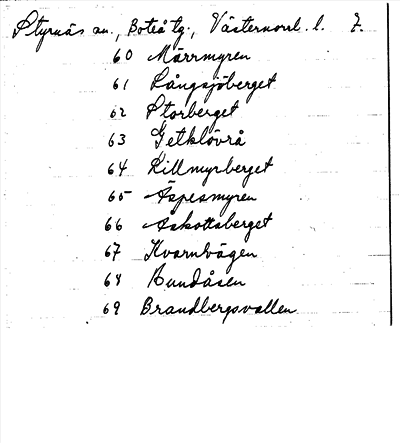 Styrnäs sn., Boteå tg., Västernorrl. l. 7.
60 Märrmyren
61 Långsjöberget
62 Storberget
63 Getklövrå
64 Killmyrberget
65 Äspesmyren
66 Åskottsberget
67 Kvarnvägen
68 Hundåsen
69 Brandbergsvallen